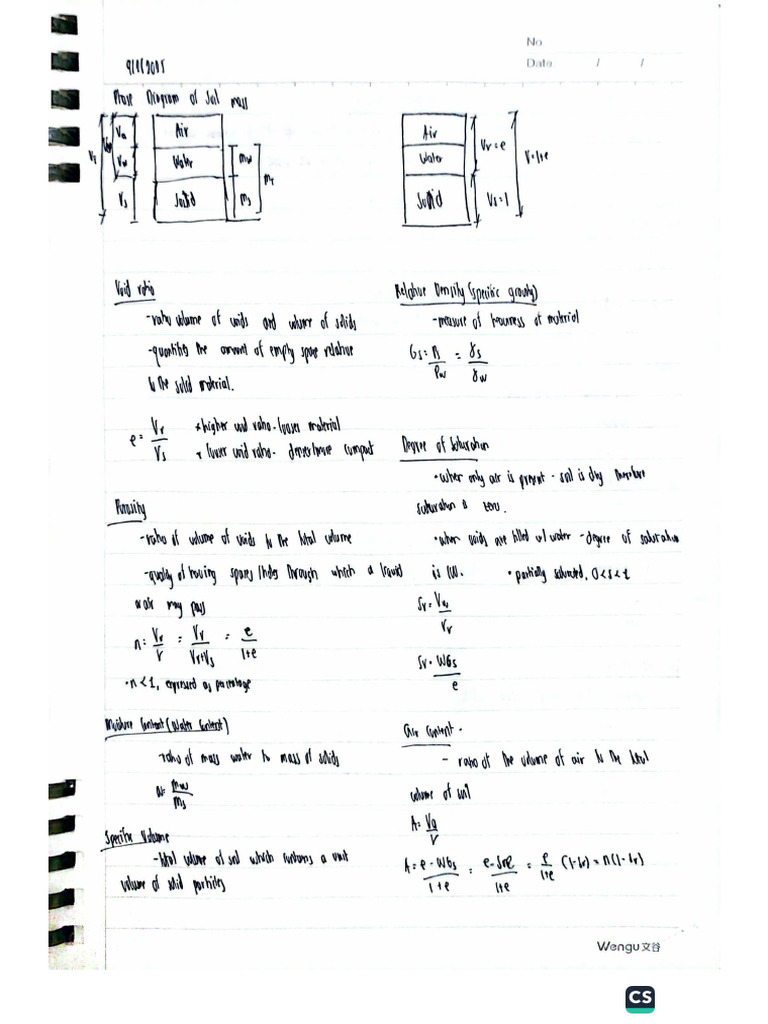 No
Date / /
Phase Diagram of Soil mass
Va
Vw
Vs
Air
Water
Solid
mw
ms
Air
Water
Solid
Vv = e
Vs = 1
V = 1+e
Void ratio
- ratio volume of voids and volume of solids
- quantifies the amount of empty space relative
to the solid material.
e = Vv / Vs
* higher void ratio - looser material
* lower void ratio - denser/more compact
Porosity
- ratio of volume of voids to the total volume
- quality of having spaces/holes through which a liquid
or air may pass
n = Vv / V = Vv / Vv+Vs = e / 1+e
• n < 1, expressed as percentage
Moisture Content (Water Content)
- ratio of mass water to mass of solids
w = mw / ms
Specific Volume
- total volume of soil which contains a unit
volume of solid particles
Relative Density (specific gravity)
- measure of heaviness of material
Gs = ρs / ρw = γs / γw
Degree of Saturation
• when only air is present - soil is dry therefore
saturation is zero.
• when voids are filled w/ water - degree of saturation
is 100. • partially saturated, 0 < s < 1
Sr = Vw / Vv
Sr = wGs / e
Air content -
- ratio of the volume of air to the total
volume of soil
A = Va / V
A = e - wGs / 1+e = e - Sre / 1+e = e / 1+e (1-Sr) = n(1-Sr)
Wengu 文谷
CS